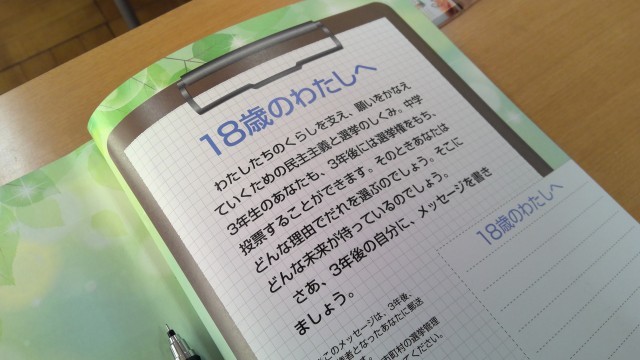 18歳のわたしへ
わたしたちのくらしを支え、願いをかなえ
ていくための民主主義と選挙のしくみ。中学
3年生のあなたも、3年後には選挙権をもち、
投票することができます。そのときあなたは
どんな理由でだれを選ぶのでしょう。そこに
どんな未来が待っているのでしょう。
さあ、3年後の自分に、メッセージを書き
ましょう。
このメッセージは、3年後、
者となったあなたに郵送
町村の選挙管理
ください。
18歳のわたしへ